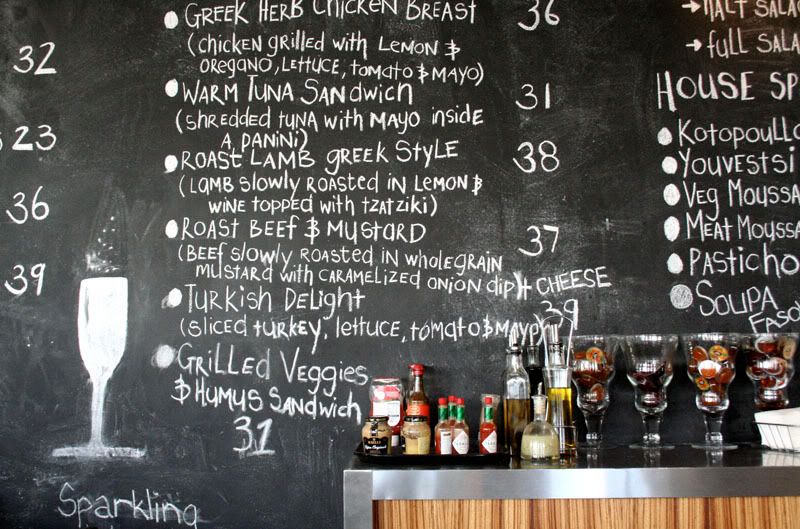 32
23
36
39
Sparkling
GREEK HERB CHICKEN BREAST 36
(CHICKEN GRILLED WITH LEMON &
OREGANO, LETTUCE, TOMATO & MAYO)
WARM TUNA SANDWICH 31
(SHREDDED TUNA WITH MAYO INSIDE
A PANINI)
ROAST LAMB GREEK STYLE 38
(LAMB SLOWLY ROASTED IN LEMON &
WINE TOPPED WITH TZATZIKI)
ROAST BEEF & MUSTARD 37
(BEEF SLOWLY ROASTED IN WHOLEGRAIN
MUSTARD WITH CARAMELIZED ONION DIP) + CHEESE
39
TURKISH DELIGHT
(SLICED TURKEY, LETTUCE, TOMATO & MAYO
GRILLED VEGGIES
& HUMUS SANDWICH
31
→ HALF SALA
→ full SALA
HOUSE SP
KOTOPOULLO
YOUVESTSI
VEG MOUSSA
MEAT MOUSSA
PASTICHO
SOUPA
FASO